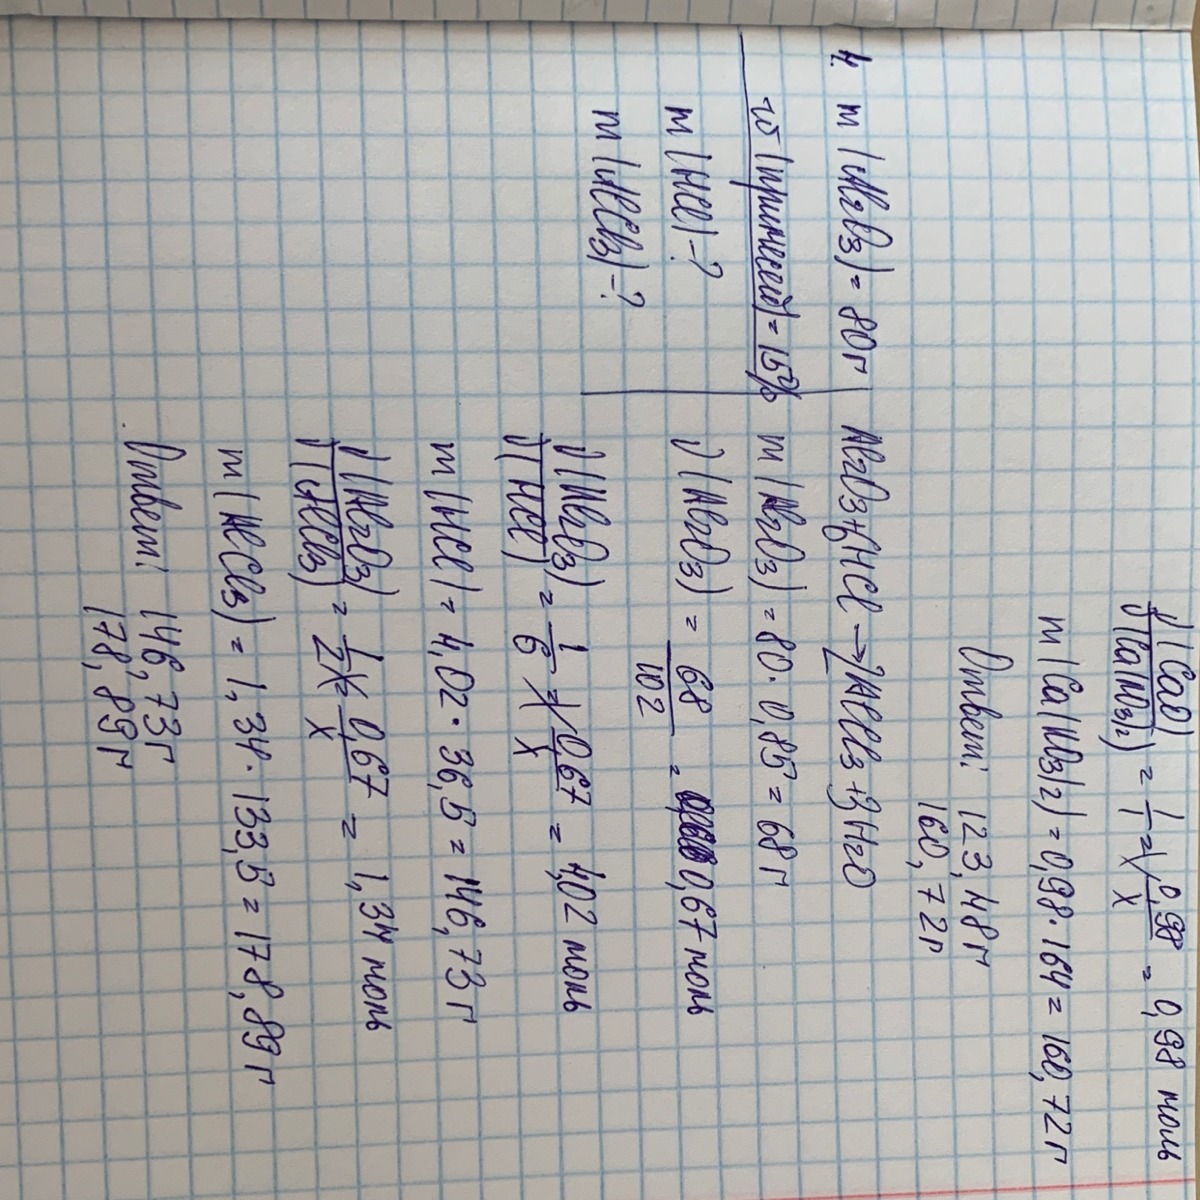 ν(CaO)/ν(Ca(NO3)2) = 1/1 = 0,98/x = 0,98 моль
m(Ca(NO3)2) = 0,98 · 164 = 160,72 г
Ответ: 123,48 г
160,72 г
4. m(Al2O3) = 80 г
w(примесей) = 15%
m(HCl) - ?
m(AlCl3) - ?
Al2O3 + 6HCl → 2AlCl3 + 3H2O
m(Al2O3) = 80 · 0,85 = 68 г
ν(Al2O3) = 68/102 = 0,67 моль
ν(Al2O3)/ν(HCl) = 1/6 = 0,67/x = 4,02 моль
m(HCl) = 4,02 · 36,5 = 146,73 г
ν(Al2O3)/ν(AlCl3) = 1/2 = 0,67/x = 1,34 моль
m(AlCl3) = 1,34 · 133,5 = 178,89 г
Ответ: 146,73 г
178,89 г